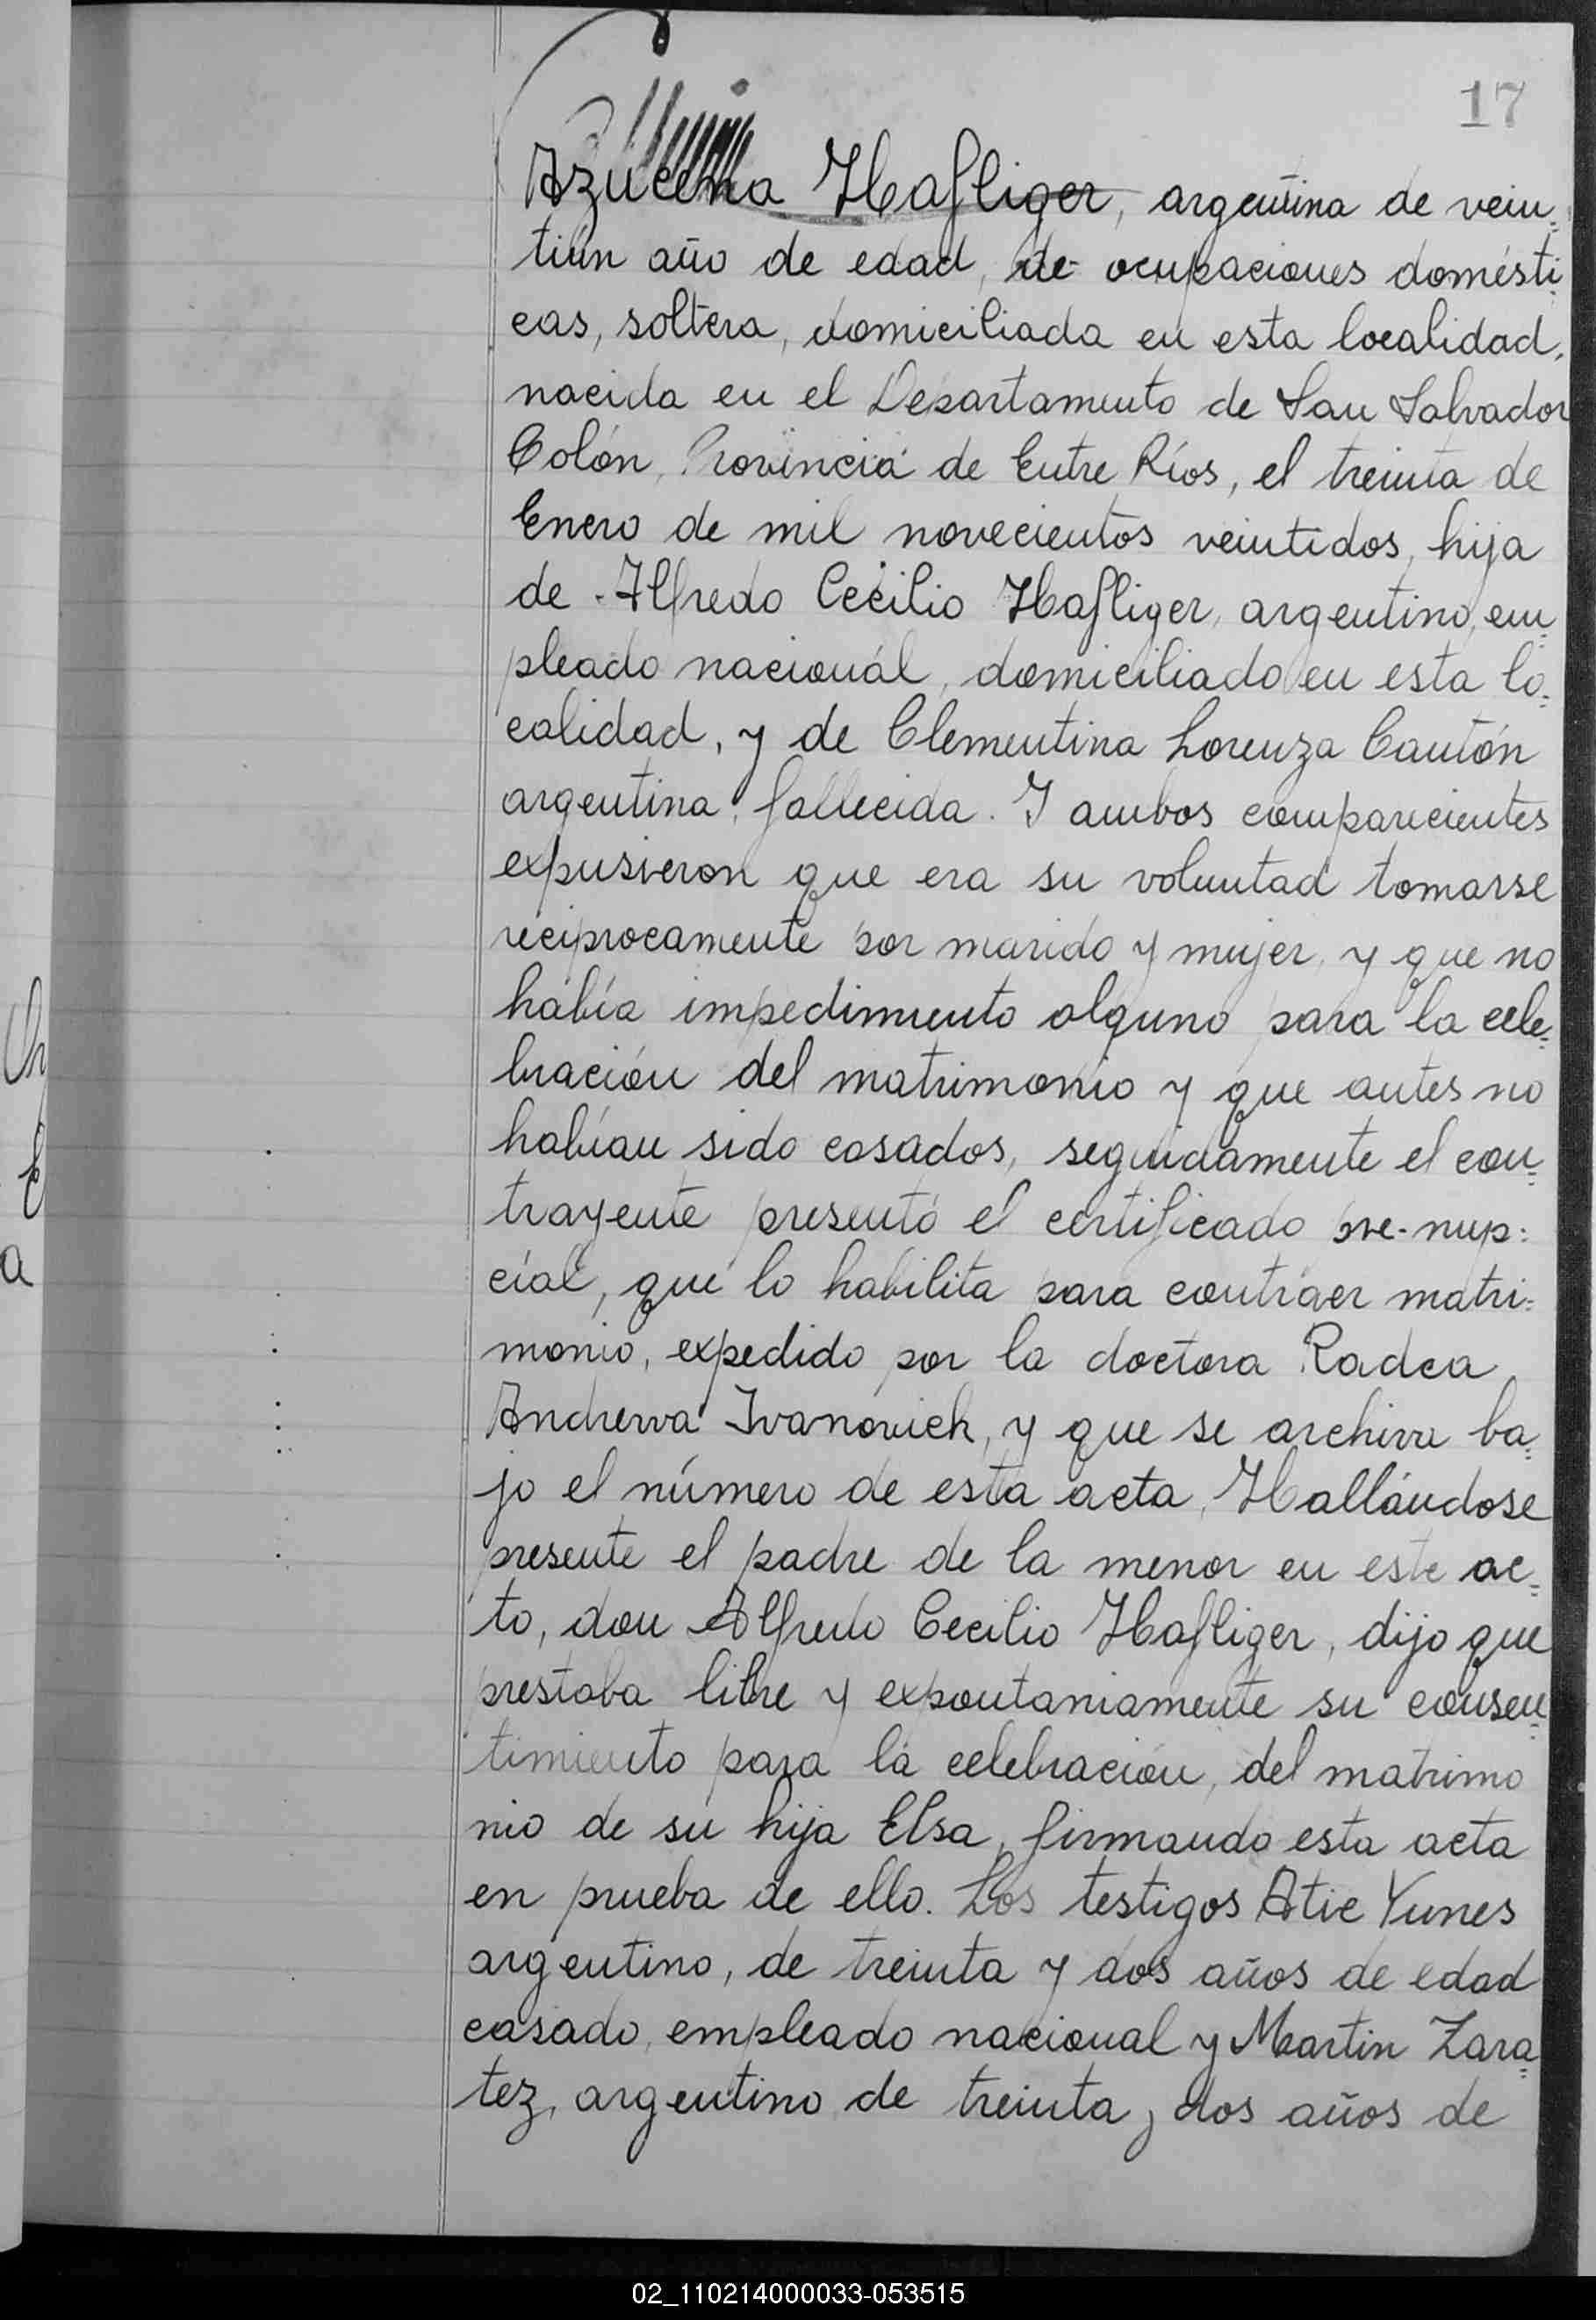 17
Azucena Hafliger, argentina de vein=
tiún año de edad, de ocupaciones domésti=
cas, soltera, domiciliada en esta localidad,
nacida en el Departamento de San Salvador
Colón, Provincia de Entre Ríos, el treinta de
Enero de mil novecientos veintidos, hija
de Alfredo Cecilio Hafliger, argentino, em=
pleado nacional, domiciliado en esta lo=
calidad, y de Clementina Lorenza Cantón
argentina, fallecida. Y ambos comparecientes
expusieron que era su voluntad tomarse
recíprocamente por marido y mujer, y que no
había impedimento alguno para la cele=
bración del matrimonio y que antes no
habían sido casados, seguidamente el con=
trayente presentó el certificado pre-nup=
cial, que lo habilita para contraer matri=
monio, expedido por la doctora Radca
Andrewa Ivanovich, y que se archiva ba=
jo el número de esta acta, Hallándose
presente el padre de la menor en este ac=
to, don Alfredo Cecilio Hafliger, dijo que
prestaba libre y expontaniamente su consen=
timiento para la celebración, del matrimo
nio de su hija Elsa, firmando esta acta
en prueba de ello. Los testigos Atie Yunes
argentino, de treinta y dos años de edad
casado, empleado nacional y Martin Zara=
tez, argentino de treinta y dos años de
02_110214000033-053515